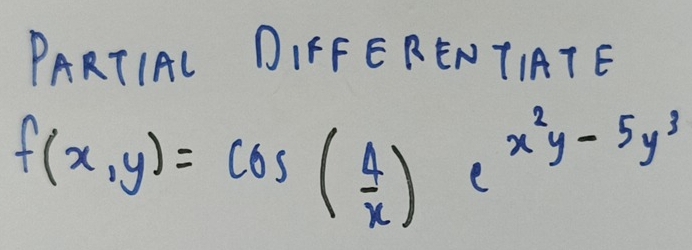 PARTIAL DIFFERENTIATE
f(x,y) = cos (4/x) e^{x^2y - 5y^3}